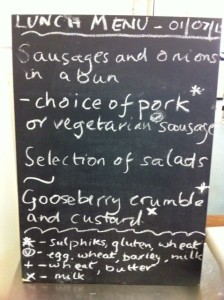 LUNCH MENU - 01/07/1
Sausages and onions
in a bun
- choice of pork *
or vegetarian sausage
Selection of salads
~
Gooseberry crumble
and custard x
* - sulphiks, gluten, wheat
- egg, wheat, barley, milk
+ - wheat, butter
x - milk